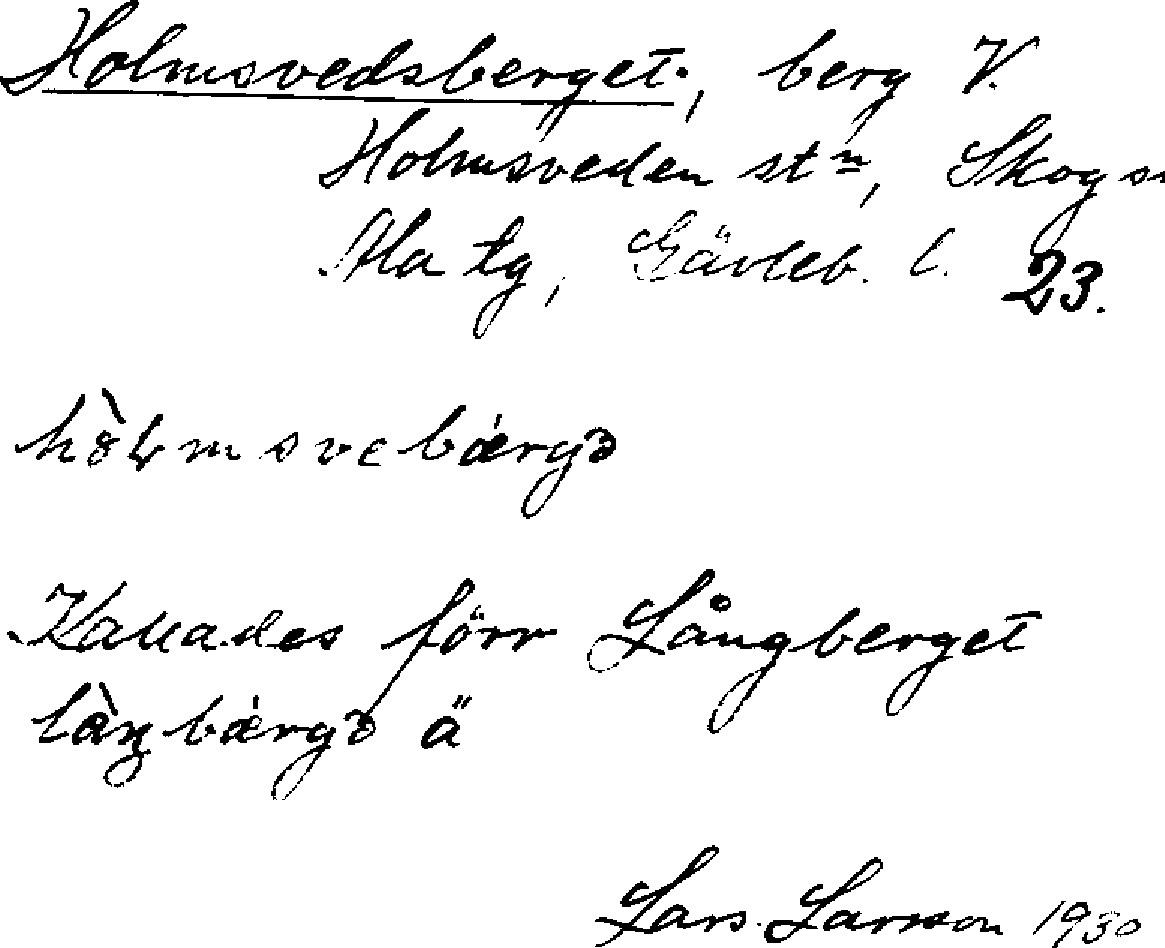 Holmsvedsberget, berg V.
Holmsveden stn, Skogs
Ala tg, Gävleb. l. 23.
hòlmsvebærgə
Kallades förr Långberget
làŋbærgə ä
Lars Larsson 1930